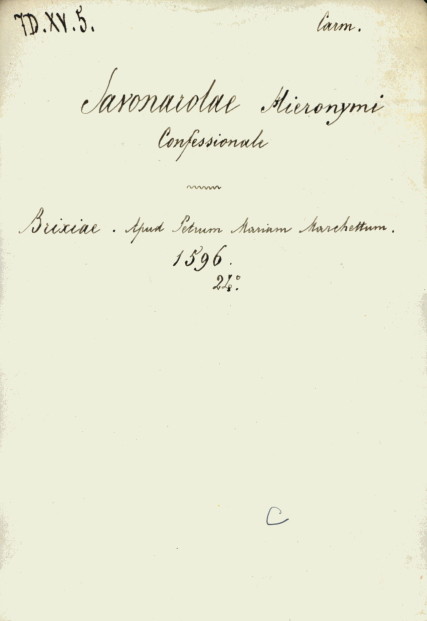 7D.XV.5. Carm.
Savonarolae Hieronymi
Confessionale
Brixiae. Apud Petrum Mariam Marchettum.
1596.
24°.
C